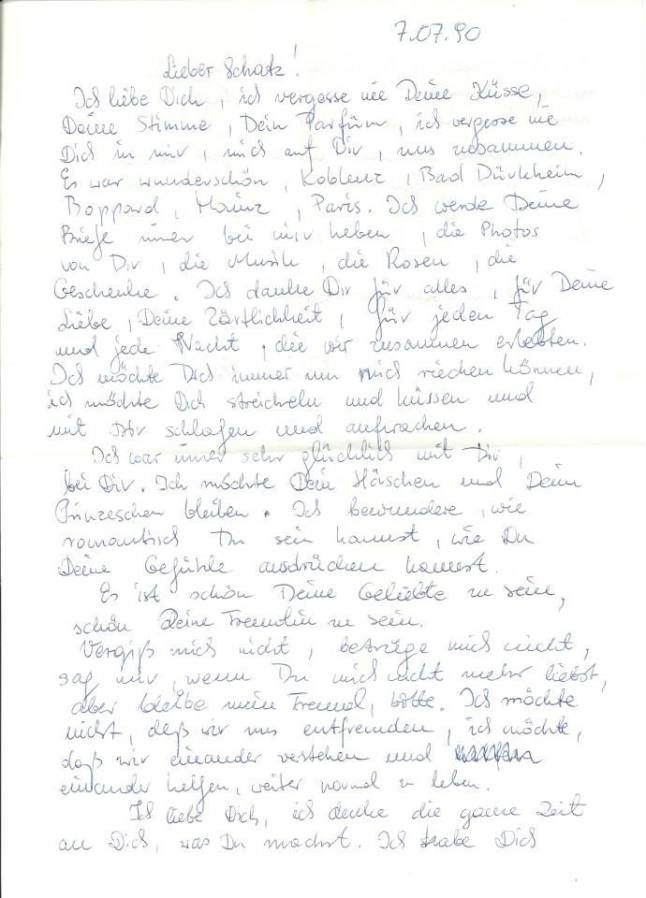 7.07.90
Lieber Schatz!
Ich liebe Dich, ich vergesse nie Deine Küsse,
Deine Stimme, Dein Parfüm, ich vergesse nie
Dich in mir, mich auf Dir, uns zusammen.
Es war wunderschön, Koblenz, Bad Dürkheim,
Boppard, Mainz, Paris. Ich werde Deine
Briefe imer bei mir heben, die Photos
von Dir, die Musik, die Rosen, die
Geschenke. Ich danke Dir für alles, für Deine
Liebe, Deine Zärtlichkeit, für jeden Tag
und jede Nacht, die wir zusammen erlebten.
Ich möchte Dich immer um mich riechen können,
ich möchte Dich streicheln und küssen und
mit Dir schlafen und aufwachen.
Ich war imer sehr glücklich mit Dir,
bei Dir. Ich möchte Dein Häschen und Dein
Prinzeschen bleiben. Ich bewundere, wie
romantisch Du sein kannst, wie Du
Deine Gefühle ausdrücken kannst.
Es ist schön Deine Geliebte zu sein,
schön Deine Freundin zu sein.
Vergiß mich nicht, betrüge mich nicht,
sag mir, wenn Du mich nicht mehr liebst,
aber bleibe mein Freund, bitte. Ich möchte
nicht, daß wir uns entfremden, ich möchte,
daß wir einander verstehen und
einander helfen, weiter normal zu leben.
Ich liebe Dich, ich denke die ganze Zeit
an Dich, was Du machst. Ich habe Dich